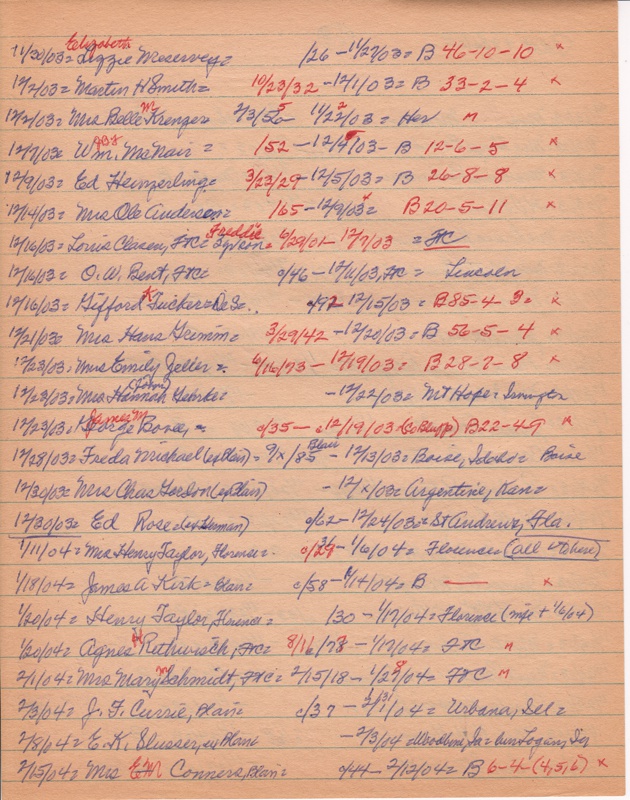 Elizabeth
11/30/03= Lizzie Meservey= /26 - 11/27/03= B 46-10-10 x
12/2/03= Martin H Smith= 10/23/32 - 12/1/03= B 33-2-4 x
12/2/03= Mrs Belle M Krenger= 2/3/ 11/22/03= Her M
12/7/03= Wm. McNair = /52 - 12/4/03- B 12-6-5 x
12/9/03= Ed Hemperling= 3/23/29 - 12/5/03= B 26-8-8 x
12/14/03= Mrs Ole Anderson= /65 - 12/9/03= B 20-5-11 x
12/16/03= Louis Clasen, FtC= Freddie 6/29/01 - 12/7/03 = FtC
12/16/03= O.W. Bent, FtC= c/46 - 12/11/03, FtC = Lincoln
12/16/03= Gifford K Tucker= DeS= c/92 12/15/03= B 85-4- x
12/21/03= Mrs Hans Grimm= 3/29/42 - 12/20/03= B 56-5-4 x
12/23/03= Mrs Emily Zeller= 6/16/73 - 12/19/03= B 28-7-8 x
12/23/03= Mrs Hannah (John) Gehrke= - 12/22/03= Mt Hope= Irvington
12/23/03= George James M = c/35 - c12/19/03 (Co Bluffs) B 22-4-9 x
12/28/03= Freda Michael (ex Blair) = 9/x/85 Blair - 12/13/03= Boise, Idaho= Boise
12/30/03= Mrs Chas Gordon (ex Blair) - 12/x/03= Argentine, Kan=
12/30/03= Ed Rose (ex Herman) c/62 - 12/24/03= St Andrews, Fla.
1/11/04= Mrs Henry Taylor, Florence= c/29 - 1/6/04= Florence (all others)
1/18/04= James A Kirk= Blair= c/58 - 1/14/04= B — x
1/20/04= Henry Taylor, Florence= /30 - 1/17/04= Florence (wife + 1/6/04)
1/20/04= Agnes H Rethwisch, FtC= 8/16/78 - 1/17/04= FtC M
2/1/04= Mrs Mary M Schmidt, FtC= 2/15/18 - 1/28/04= FtC M
2/3/04= J. F. Currie, Blair= c/37 - 1/31/04= Urbana, Ill=
2/8/04= E. K. Slusser, ex Blair= - 2/3/04 Woodbine, Ia= bur Logan, Ia
2/15/04= Mrs EM Conners, Blair= c/44 - 2/12/04= B 6-4-(4,5,6) x